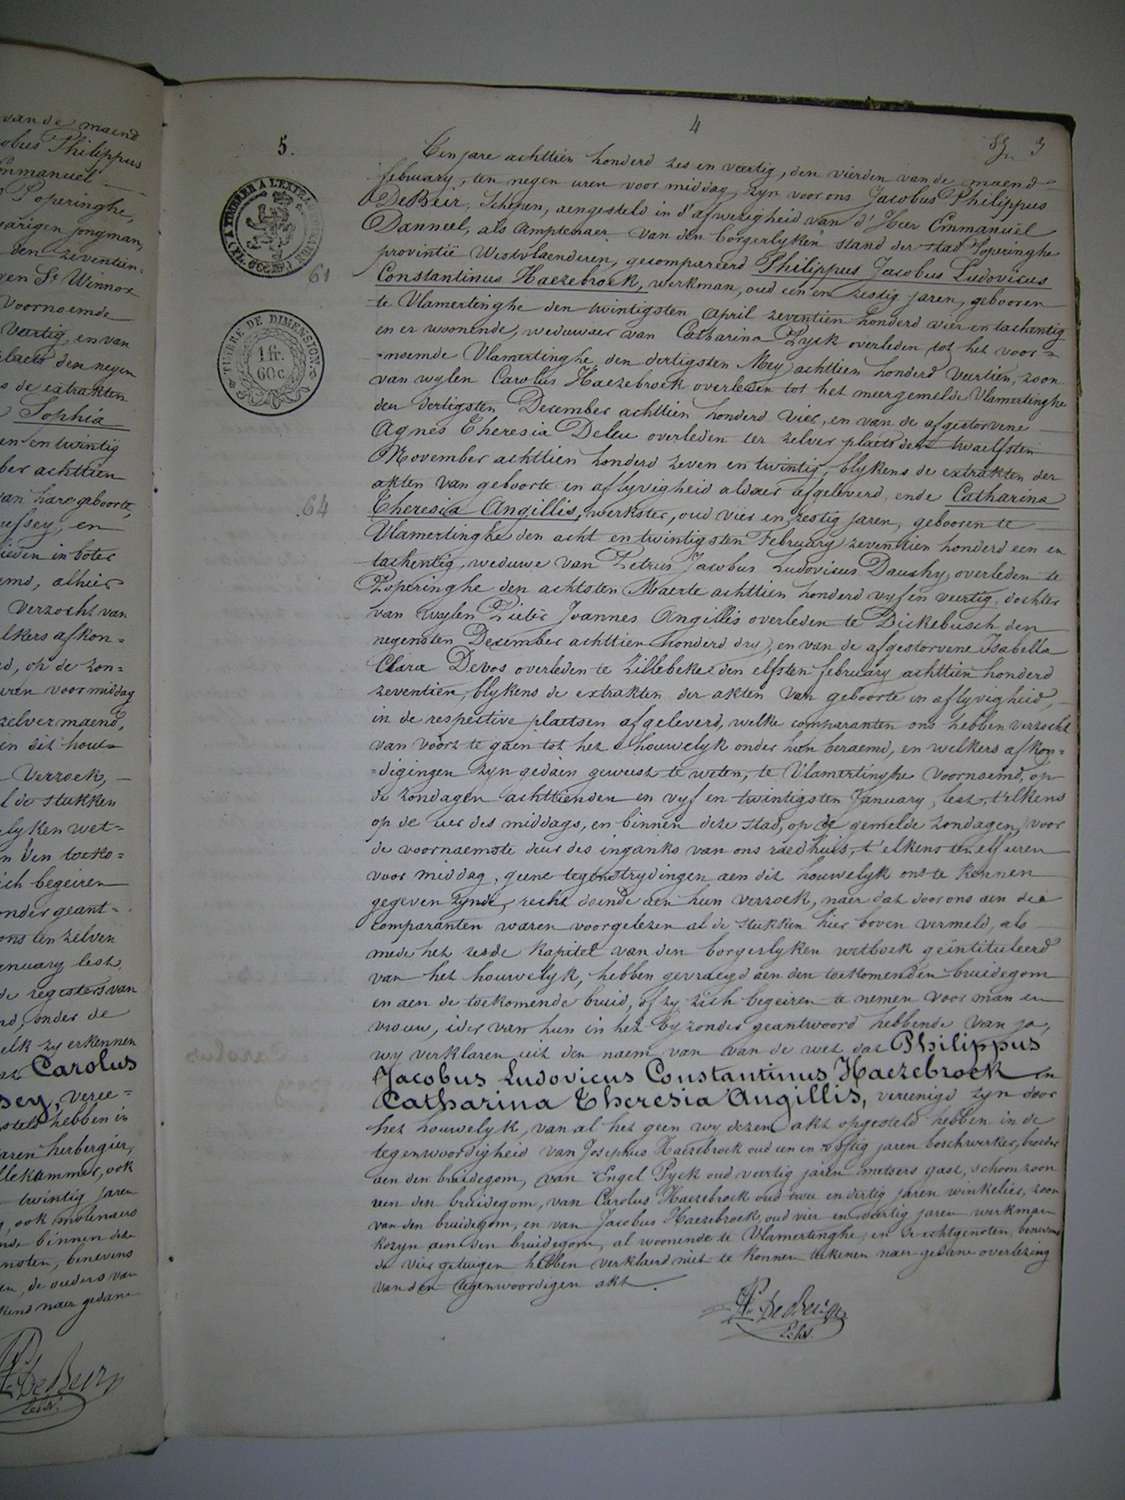 van de maend
Jacobus Philippus
Emmanuel
Poperinghe,
jarigen jongman,
den zeventien-
St Winnox
voornoemde
veertig, en van
plaets den negen
de extrakten
Sophia
en en twintig
ber achttien
van hare geboorte,
en
lieden in boter
alhier
verzocht van
welkers afkon-
op de zon-
uren voor middag
zelver maend,
en dit houw-
verzoek,
al de stukken
lyken wet-
den toeko-
zich begeiren
zonder geant-
ons ten zelven
January lest
de registers van
onder de
elk zy erkennen
Carolus
veree-
gesteld hebben in
jaren herbergier,
ook
twintig jaren
ook molenaers
binnen deze
benevens
de ouders van
naer gedane
De Beir
Scho.
4
5. 3
A TIMBRER A L'EXTRAORDINAIRE
Tenjare achttien honderd zes en veertig, den vierden van de maend
february, ten negen uren voor middag, zyn voor ons Jacobus Philippus
DeBeir, Schepen, aengesteld in d'afwezigheid van d'Heer Emmanuel
Danneel, als Amptenaer van den borgerlyken stand der stad Poperinghe
provintië Westvlaenderen, gecompareerd Philippus Jacobus Ludovicus
61 Constantinus Haezebroek, werkman, oud een en zestig jaren, geboren
te Vlamertinghe den twintigsten April zeventien honderd vier en tachentig
en er woonende, weduwaer van Catharina Pyck overleden tot het voor-
TIMBRE DE DIMENSION
1 fr.
60 c.
-noemde Vlamertinghe, den dertigsten Mey achttien honderd veertien, zoon
van wylen Carolus Haezebroek overleden tot het meergemelde Vlamertinghe
den dertigsten December achttien honderd vier, en van de afgestorvene
Agnes Theresia Deleu overleden ter zelver plaets den twaelfsten
November achttien honderd zeven en twintig, blykens de extrakten der
akten van geboorte en aflyvigheid aldaer afgeleverd, ende Catharina
64 Theresia Angillis, werkster, oud vier en zestig jaren, geboren te
Vlamertinghe den acht en twintigsten February zeventien honderd een en
tachentig, weduwe van Petrus Jacobus Ludovicus Dauchy, overleden te
Poperinghe den achtsten Maerte achttien honderd vyf en veertig, dochter
van wylen Pieter Joannes Angillis overleden te Dickebusch den
negensten December achttien honderd dry, en van de afgestorvene Isabella
Clara Devos overleden te Zillebeke den elfsten february achttien honderd
zeventien, blykens de extrakten der akten van geboorte en aflyvigheid,
in de respective plaetsen afgeleverd, welke comparanten ons hebben verzocht
van voort te gaen tot het houwelyk onder hun beraemd, en welkers afkon-
-digingen zyn gedaen geweest te weten, te Vlamertinghe voornoemd, op
de zondagen achttienden en vyf en twintigsten January, lest, t'elkens
op de uer des middags, en binnen deze stad, op de gemelde zondagen, voor
de voornaemste deur des inganks van ons raedhuis, t'elkens ten elf uren
voor middag, geene tegenstrydingen aen dit houwelyk ons te kennen
gegeven zynde, recht doende aen hun verzoek, naer dat door ons aen die
comparanten waren voorgelezen al de stukken hier boven vermeld, als
mede het zesde kapitel van den borgerlyken wetboek geïntituleerd
van het houwelyk, hebben gevraegd aen den toekomenden bruidegom
en aen de toekomende bruid, of zy zich begeiren te nemen voor man en
vrouw, ider van hun in het byzonder geantwoord hebbende van ja,
wy verklaren uit den naem van van de wet dat Philippus
Jacobus Ludovicus Constantinus Haezebroek en
Catharina Theresia Angillis, vereenigd zyn door
het houwelyk, van al het geen wy dezen akt opgesteld hebben in de
tegenwoordigheid van Josephus Haezebroek oud een en vyftig jaren boschwerker, broeder
aen den bruidegom, van Engel Pyck oud veertig jaren metsers gast, schoon zoon
aen den bruidegom, van Carolus Haezebroek oud twee en dertig jaren winkelier, zoon
van den bruidegom, en van Jacobus Haezebroek, oud vier en veertig jaren werkman
kozyn aen den bruidegom, al woonende te Vlamertinghe, en de echtgenoten, benevens
de vier getuigen hebben verklaerd niet te konnen teekenen naer gedane overlezing
van den tegenwoordigen akt.
De Beir
Scho.